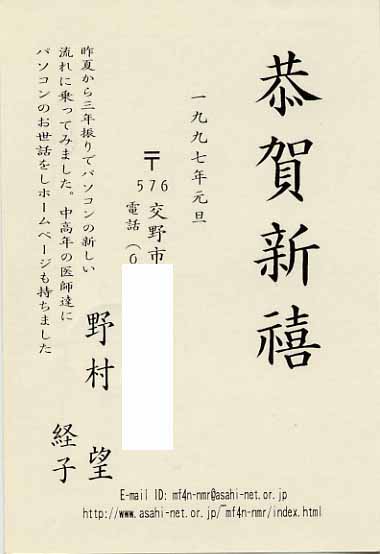 恭賀新禧
一九九七年元旦
〒576 交野市
電話（0
野村 望
経子
昨夏から三年振りでパソコンの新しい
流れに乗ってみました。中高年の医師達に
パソコンのお世話をしホームページも持ちました
E-mail ID: mf4n-nmr@asahi-net.or.jp
http://www.asahi-net.or.jp/~mf4n-nmr/index.html